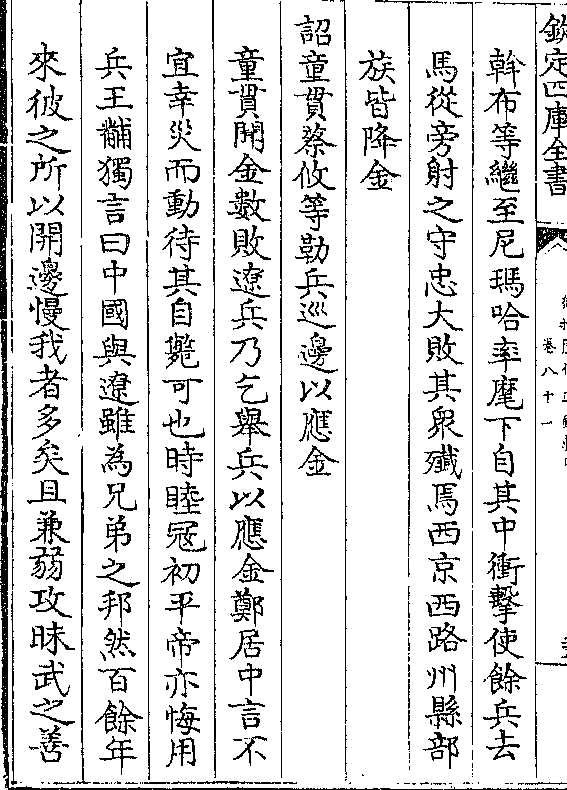 欽定四庫全書
卷八十一
斡布等繼至尼瑪哈率麾下自其中衝擊使餘兵去
馬從旁射之守忠大敗其衆殲焉西京西路州縣部
族皆降金
詔童貫蔡攸等勒兵巡邊以應金
童貫聞金數敗遼兵乃乞舉兵以應金鄭居中言不
宜幸災而動待其自斃可也時睦冦初平帝亦悔用
兵王黼獨言曰中國與遼雖為兄弟之邦然百餘年
來彼之所以開邊慢我者多矣且兼弱攻昧武之善